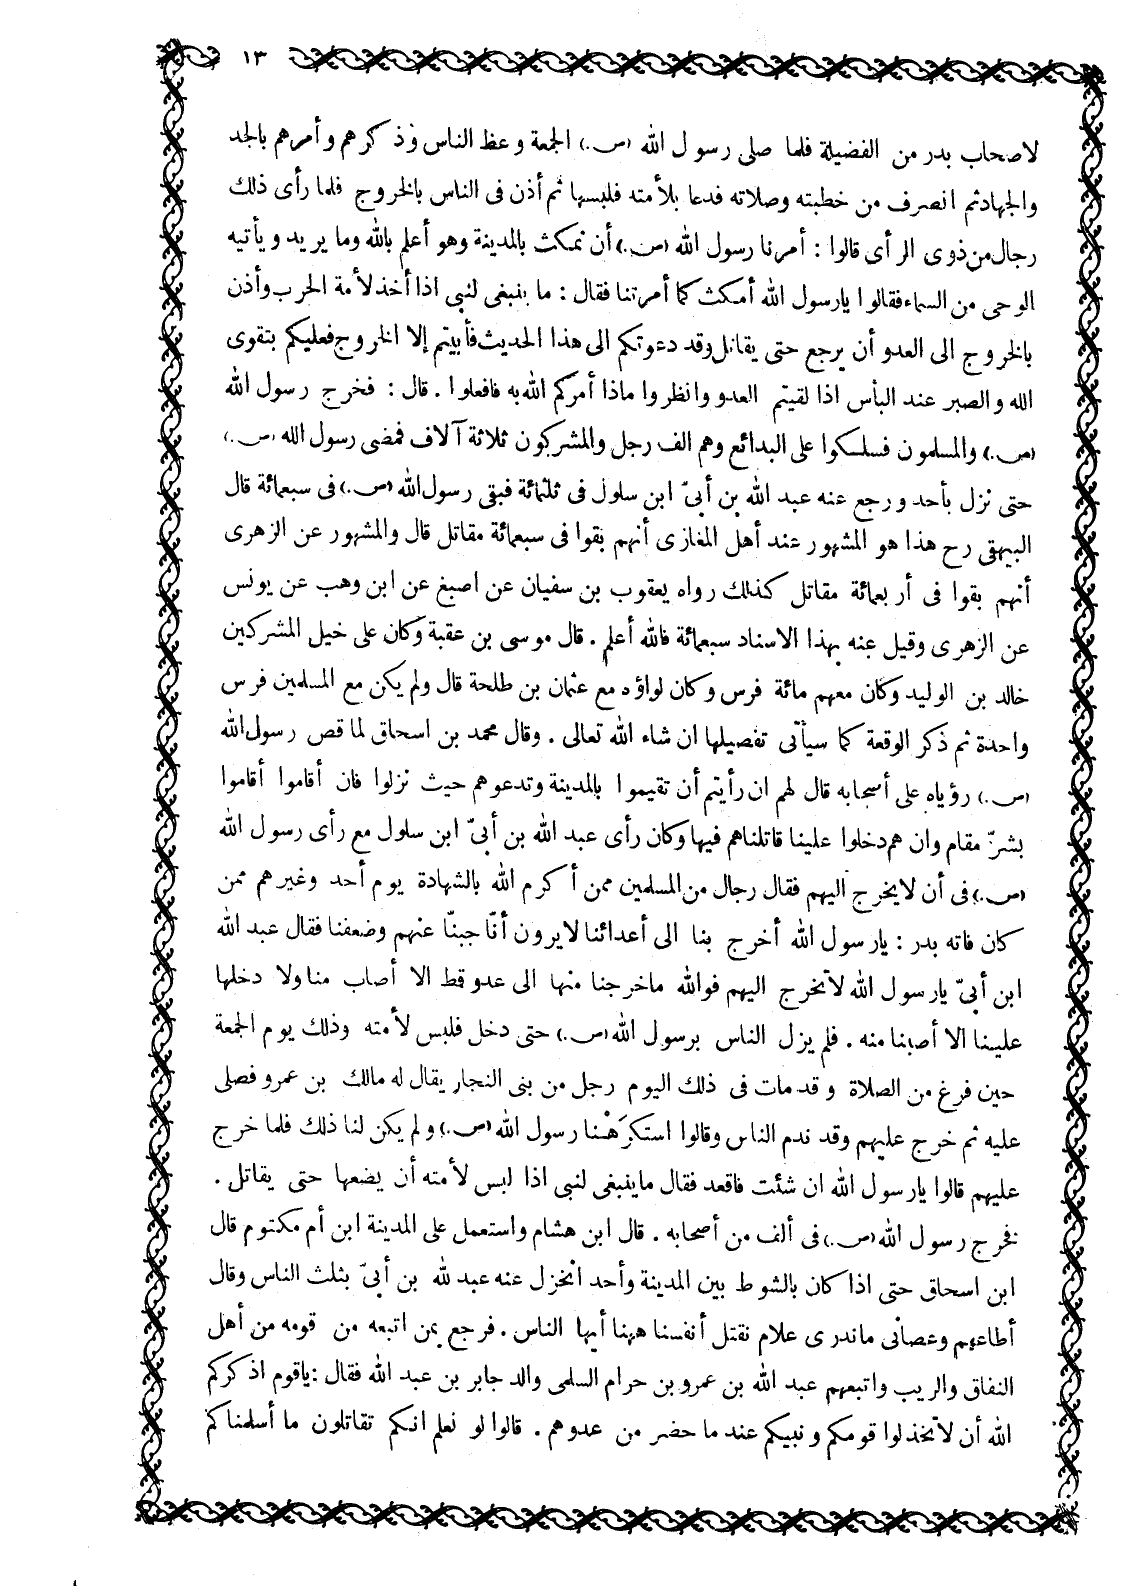 ١٣
لاصحاب بدر من الفضيلة فلما صلى رسول الله (ص.) الجمعة وعظ الناس وذكرهم وأمرهم بالجد
والجهاد ثم انصرف من خطبته وصلاته فدعا بلأمته فلبسها ثم أذن فى الناس بالخروج فلما رأى ذلك
رجال من ذوى الرأى قالوا : أمرنا رسول الله (ص.) أن نمكث بالمدينة وهو أعلم بالله وما يريد ويأتيه
الوحى من السماء فقالوا يارسول الله أمكث كما أمرتنا فقال : ما ينبغى لنبى اذا أخذ لأمة الحرب وأذن
بالخروج الى العدو أن يرجع حتى يقاتل وقد دعوتكم الى هذا الحديث فأبيتم إلا الخروج فعليكم بتقوى
الله والصبر عند البأس اذا لقيتم العدو وانظروا ماذا أمركم الله به فافعلوا . قال : فخرج رسول الله
(ص.) والمسلمون فسلكوا على البدائع وهم الف رجل والمشركون ثلاثة آلاف فمضى رسول الله (ص.)
حتى نزل بأحد ورجع عنه عبد الله بن أبىّ ابن سلول فى ثلثمائة فبقى رسول الله (ص.) فى سبعمائة قال
البيهقى رح هذا هو المشهور عند أهل المغازى أنهم بقوا فى سبعمائة مقاتل قال والمشهور عن الزهرى
أنهم بقوا فى أربعمائة مقاتل كذلك رواه يعقوب بن سفيان عن اصبغ عن ابن وهب عن يونس
عن الزهرى وقيل عنه بهذا الاسناد سبعمائة فالله أعلم . قال موسى بن عقبة وكان على خيل المشركين
خالد بن الوليد وكان معهم مائة فرس وكان لواؤه مع عثمان بن طلحة قال ولم يكن مع المسلمين فرس
واحدة ثم ذكر الوقعة كما سيأتى تفصيلها ان شاء الله تعالى . وقال محمد بن اسحاق لما قص رسول الله
(ص.) رؤياه على أصحابه قال لهم ان رأيتم أن تقيموا بالمدينة وتدعوهم حيث نزلوا فان أقاموا أقاموا
بشرّ مقام وان هم دخلوا علينا قاتلناهم فيها وكان رأى عبد الله بن أبىّ ابن سلول مع رأى رسول الله
(ص.) فى أن لا يخرج اليهم فقال رجال من المسلمين ممن أكرم الله بالشهادة يوم أحد وغيرهم ممن
كان فاته بدر : يارسول الله أخرج بنا الى أعدائنا لايرون أنّا جبنّا عنهم وضعفنا فقال عبد الله
ابن أبىّ يارسول الله لاتخرج اليهم فوالله ماخرجنا منها الى عدو قط الا أصاب منا ولا دخلها
علينا الا أصبنا منه . فلم يزل الناس برسول الله (ص.) حتى دخل فلبس لأمته وذلك يوم الجمعة
حين فرغ من الصلاة وقد مات فى ذلك اليوم رجل من بنى النجار يقال له مالك بن عمرو فصلى
عليه ثم خرج عليهم وقد ندم الناس وقالوا استكرَهْنا رسول الله (ص.) ولم يكن لنا ذلك فلما خرج
عليهم قالوا يارسول الله ان شئت فاقعد فقال ماينبغى لنبى اذا لبس لأمته أن يضعها حتى يقاتل .
فخرج رسول الله (ص.) فى ألف من أصحابه . قال ابن هشام واستعمل على المدينة ابن أم مكتوم قال
ابن اسحاق حتى اذا كان بالشوط بين المدينة وأحد انخزل عنه عبد لله بن أبىّ بثلث الناس وقال
أطاعهم وعصانى ماندرى علام نقتل أنفسنا ههنا أيها الناس . فرجع بمن اتبعه من قومه من أهل
النفاق والريب واتبعهم عبد الله بن عمرو بن حرام السلمى والد جابر بن عبد الله فقال : ياقوم اذكركم
الله أن لاتخذلوا قومكم ونبيكم عند ما حضر من عدوهم . قالوا لو نعلم انكم تقاتلون ما أسلمناكم